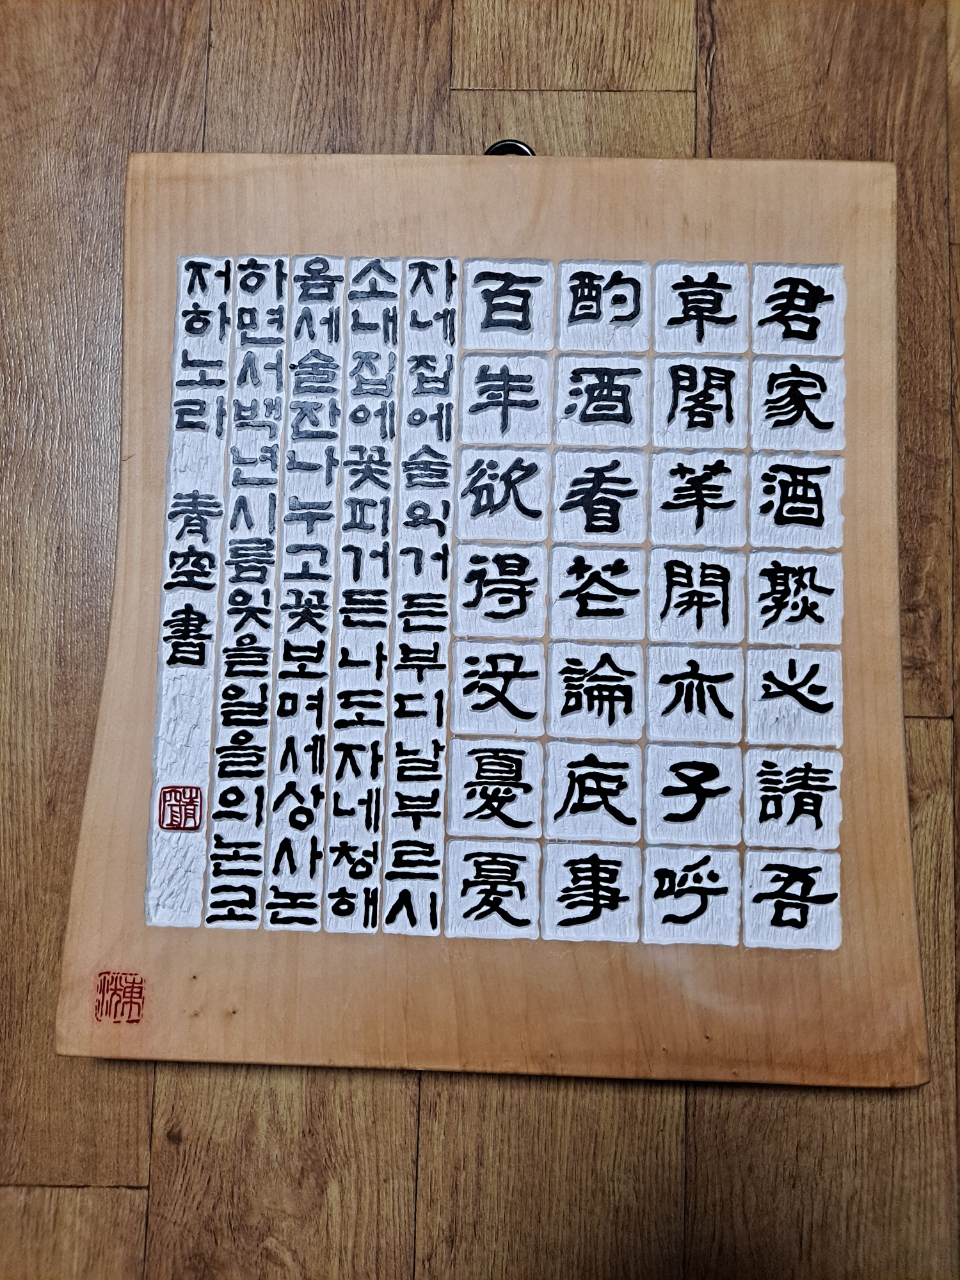 君家酒熟必請吾
草閣華開亦子呼
酌酒看花論底事
百年欲得没憂憂
자네집에술익거든부디날부르시
소내집에꽃피거든나도자네청해
옴세술잔나누고꽃보며세상사논
하면서백년시름잊을일을의논코
저하노라 青空書